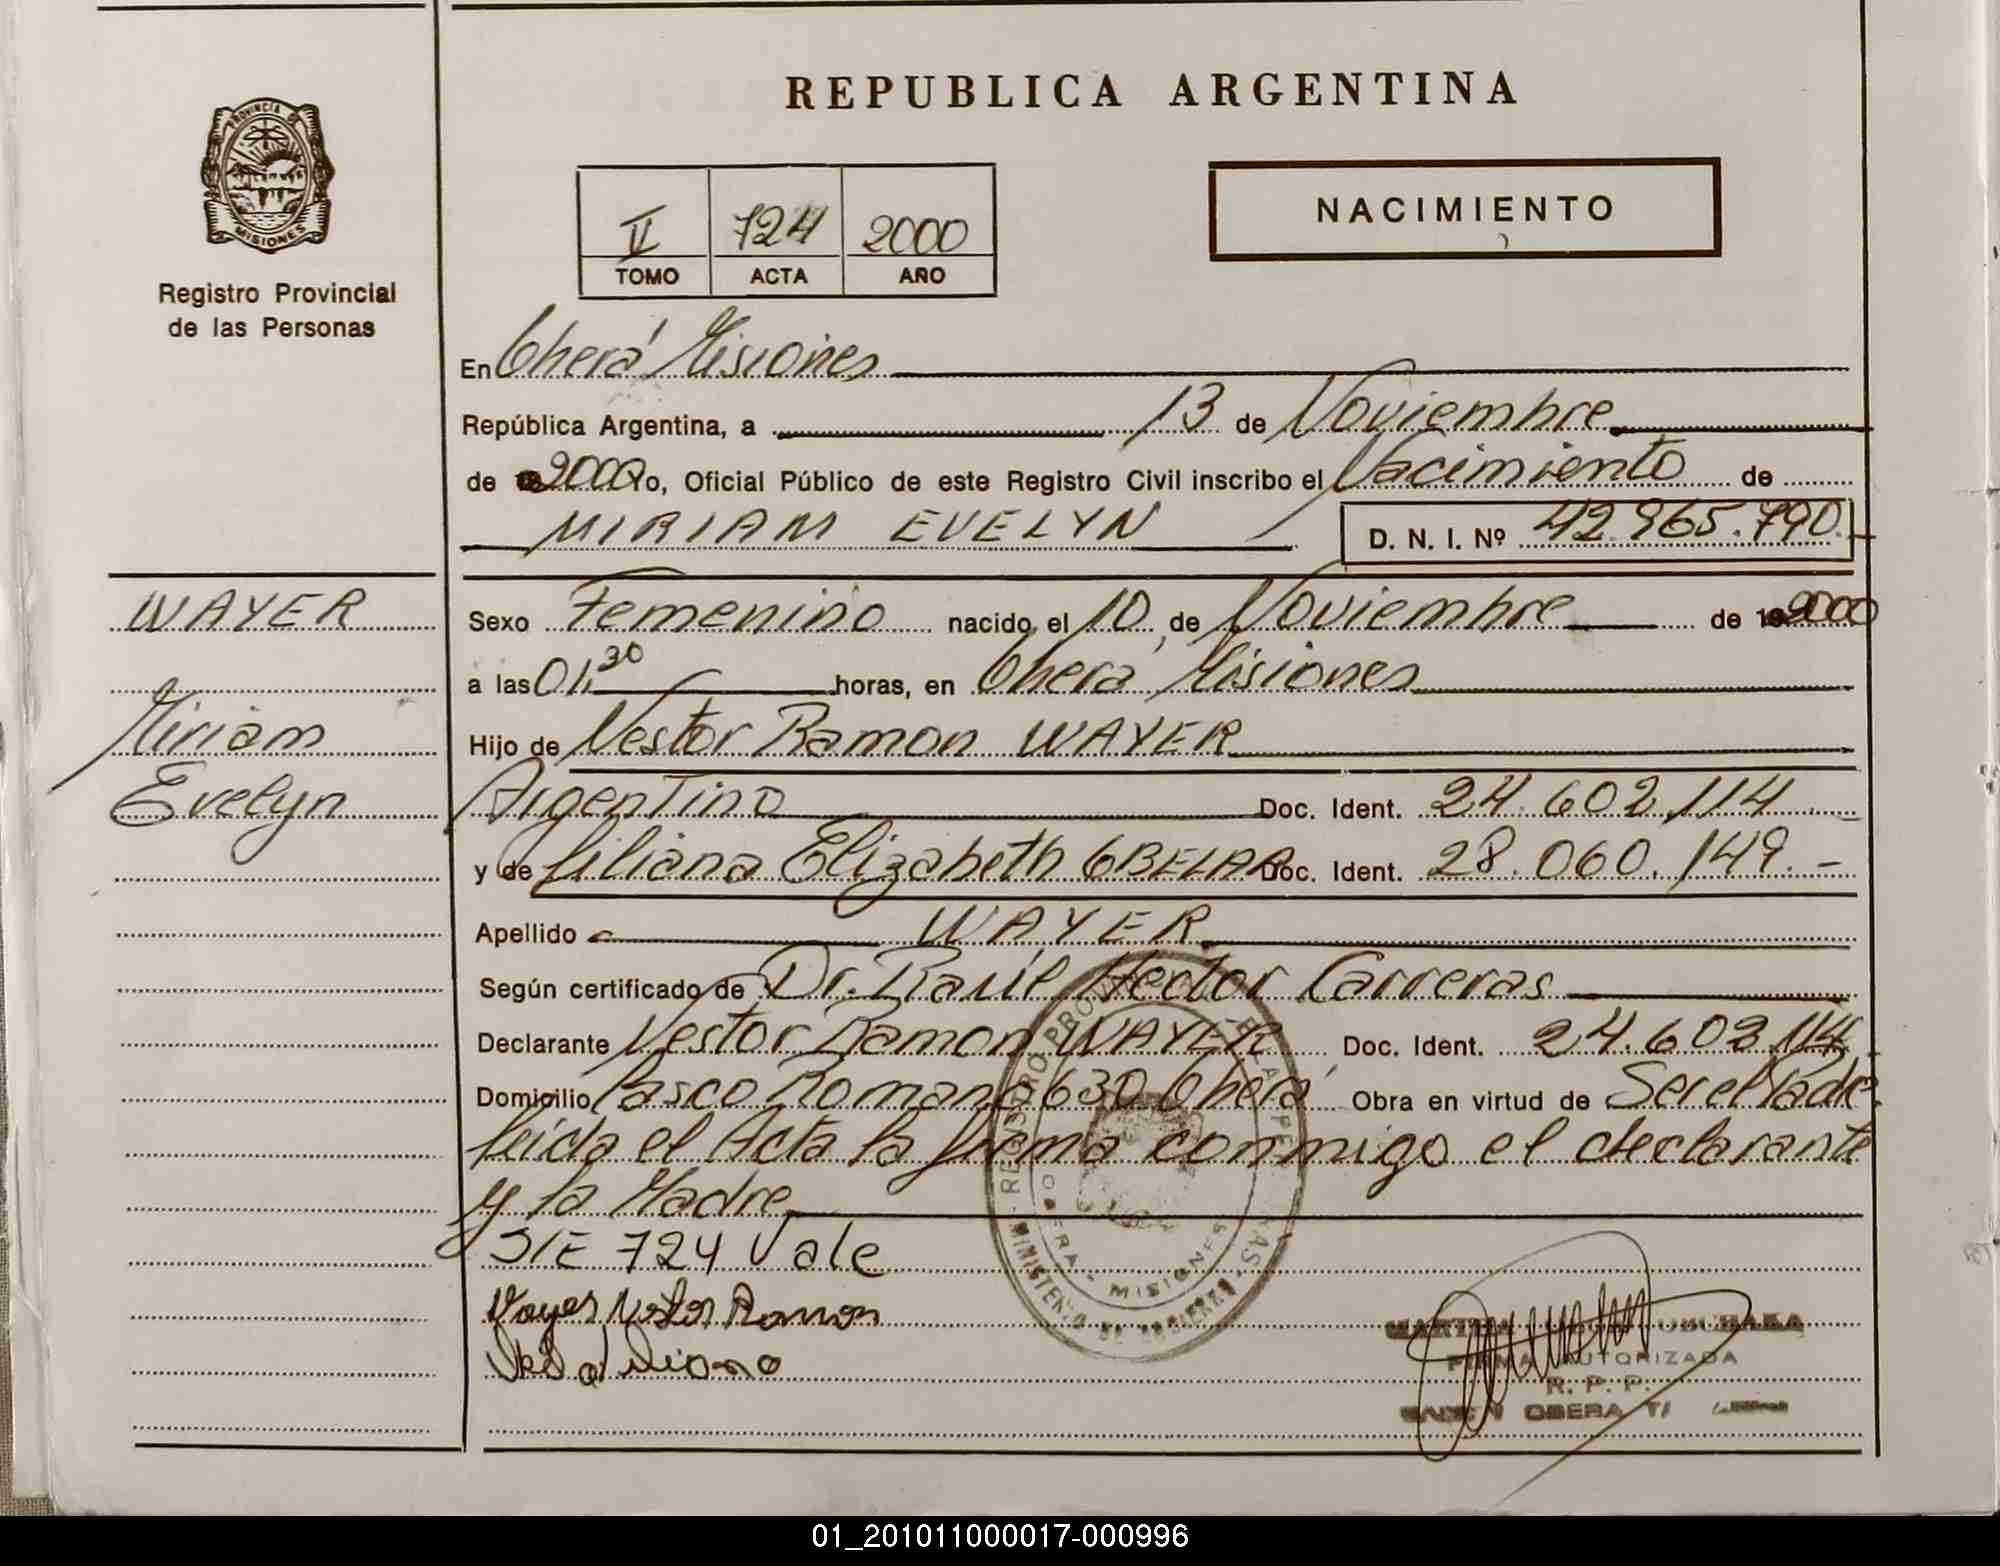 REPUBLICA ARGENTINA
PROVINCIA DE
MISIONES
Registro Provincial
de las Personas
II 724 2000
TOMO ACTA AÑO
NACIMIENTO
En Oberá Misiones
República Argentina, a 13 de Noviembre
de 2000 Yo, Oficial Público de este Registro Civil inscribo el Nacimiento de
MIRIAM EVELYN D. N. I. Nº 42.965.790.-
WAYER
Miriam
Evelyn
Sexo Femenino nacido el 10 de Noviembre de 2000
a las 01,30 horas, en Oberá Misiones
Hijo de Nestor Ramon WAYER
Argentino Doc. Ident. 24.602.114
y de Liliana Elizabeth Doc. Ident. 28.060.149.-
Apellido WAYER
Según certificado de Dr. Raúl Hector Carreras
Declarante Nestor Ramon WAYER Doc. Ident. 24.602.114
Domicilio Pasco Romano 630 Oberá Obra en virtud de Ser el Padre
leida el Acta la firma conmigo el declarante
y la Madre
S/E 724 Vale
Wayer Nestor Ramon
REGISTRO PROVINCIAL DE LAS PERSONAS
MINISTERIO DE GOBIERNO
OBERA - MISIONES
FIRMA AUTORIZADA
R. P. P.
OBERA
01_201011000017-000996